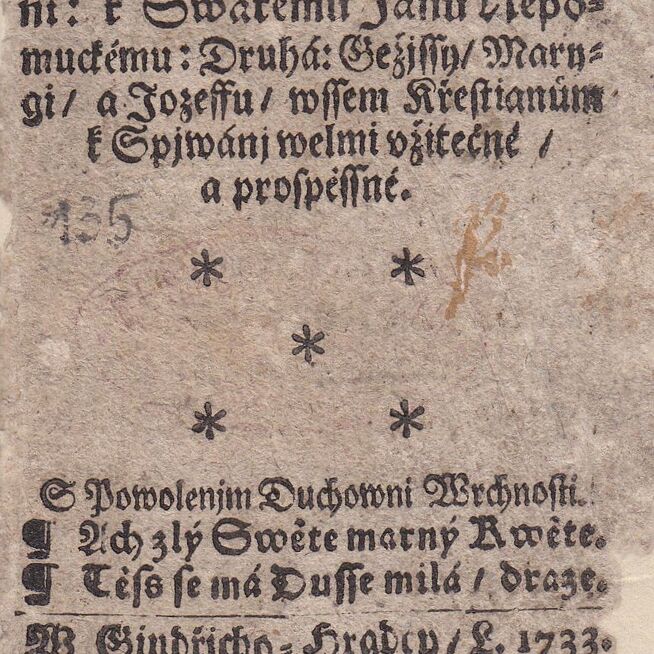 nj: k Swatému Janu Nepo=
muckému: Druhá: Gežjssy/ Mary=
gi/ a Jozeffu/ wssem Křestianům
k Spjwánj welmi vžitečné /
a prospěssné.
135
* *
*
* *
S Powolenjm Duchowni Wrchnosti.
¶ Ach zlý Swěte marný Kwěte.
¶ Těss se má Dusse milá / draze.
W Gindřicho= Hradcy/ L. 1733.